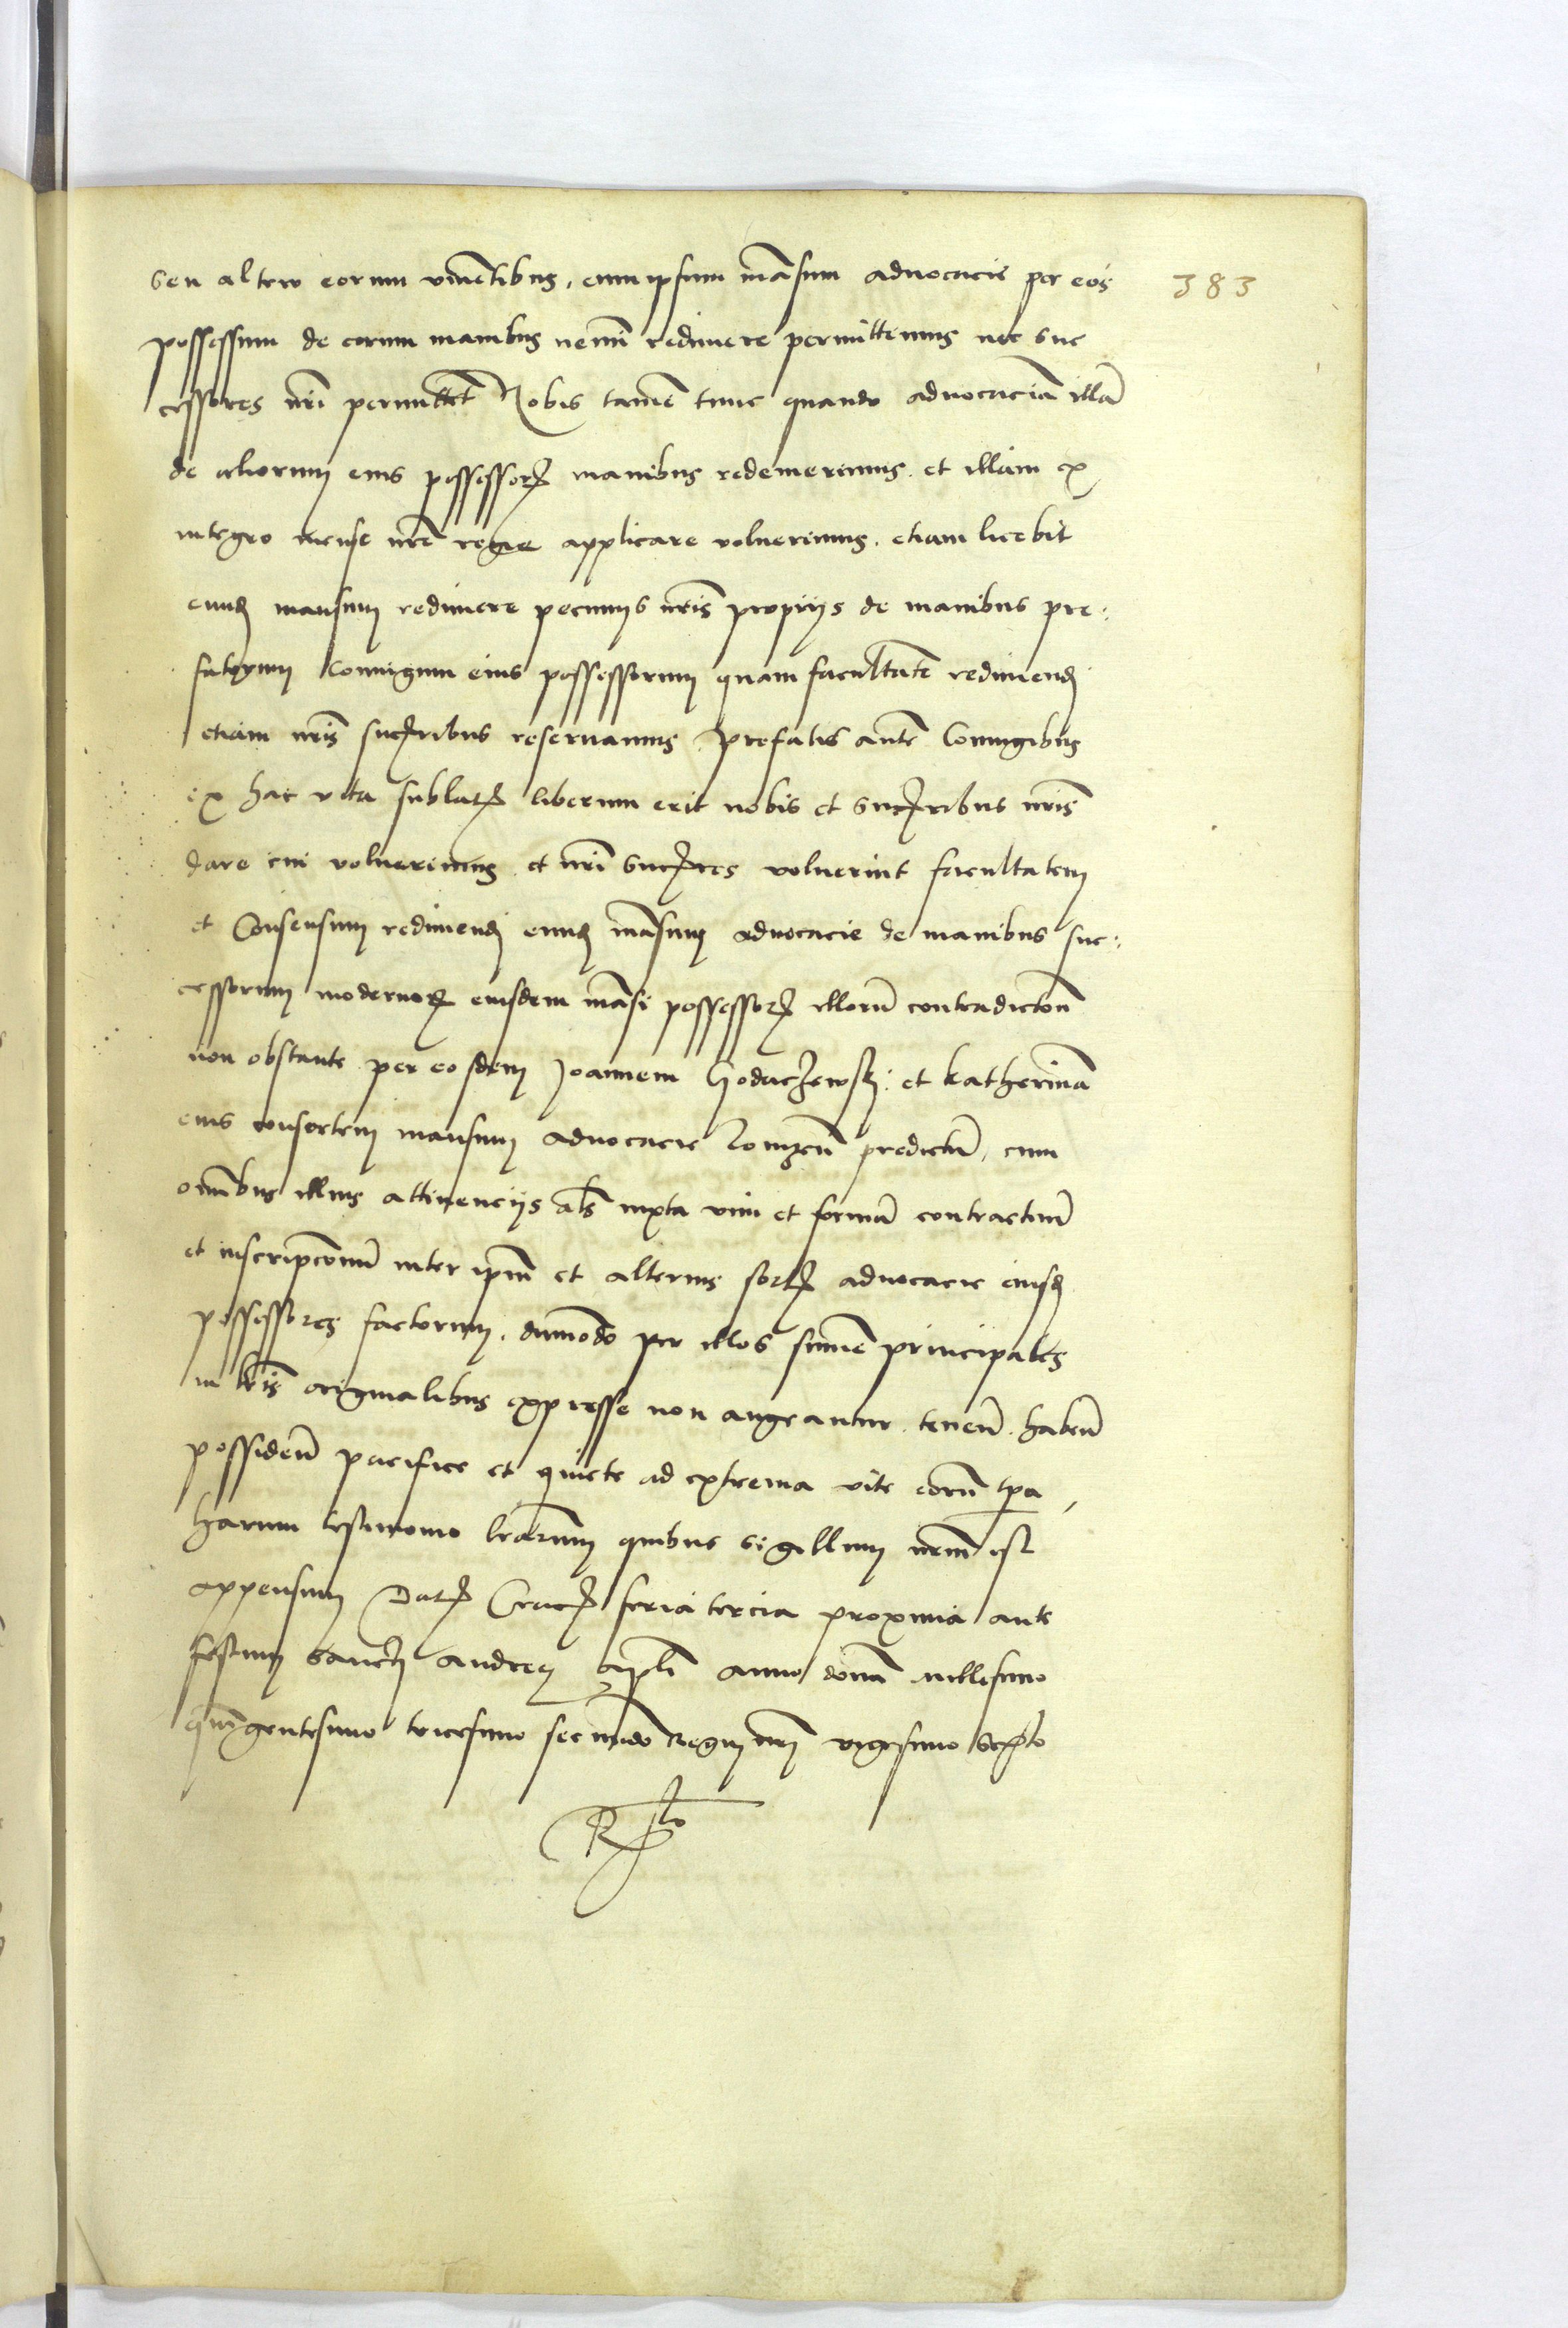 seu altero eorum viventibus, eum ipsum mansum advocacie per eos
383
possessum de eorum manibus nemini redimere permittemus nec suc
cessores nri permittent Nobis tamen tunc quando advocaciam illam
de aliorum eius possessorum manibus redemerimus et illam ex
integro mense nre regie applicare voluerimus, etiam licebit
eundem mansum redimere pecuniis nris propiis de manibus pre:
fatorum Coniugum eius possessorum quam facultatem redimendi
etiam nris successoribus reservamus prefatis autem Coniugibus
ex hac vita sublatis liberum erit nobis et successoribus nris
dare cui voluerimus et nri successores voluerint facultatem
et Consensum redimendi eundem mansum advocacie de manibus suc:
cessorum modernorum eiusdem mansi possessorum illorum contradictione
non obstante per eosdem Joannem et Katherinam
eius consortem mansum advocacie predictum, cum
omnibus illius attinenciis als iuxta vim et formam contractuum
et inscripcionum inter ipsum et alterius sortis advocacie eiusdem
possessores factorum, dummodo per illos summe principales
in lris originalibus expresse non augeantur, tenen. haben.
possiden. pacifice et quiete ad extrema vite eorum tpa,
harum testimonio lrarum quibus sigillum nrum est
appensum Dat Crac feria tercia proxima ante
festum sancti Andree apli anno domini millesimo
quingentesimo tricesimo secundo Regni nri vigesimo septo